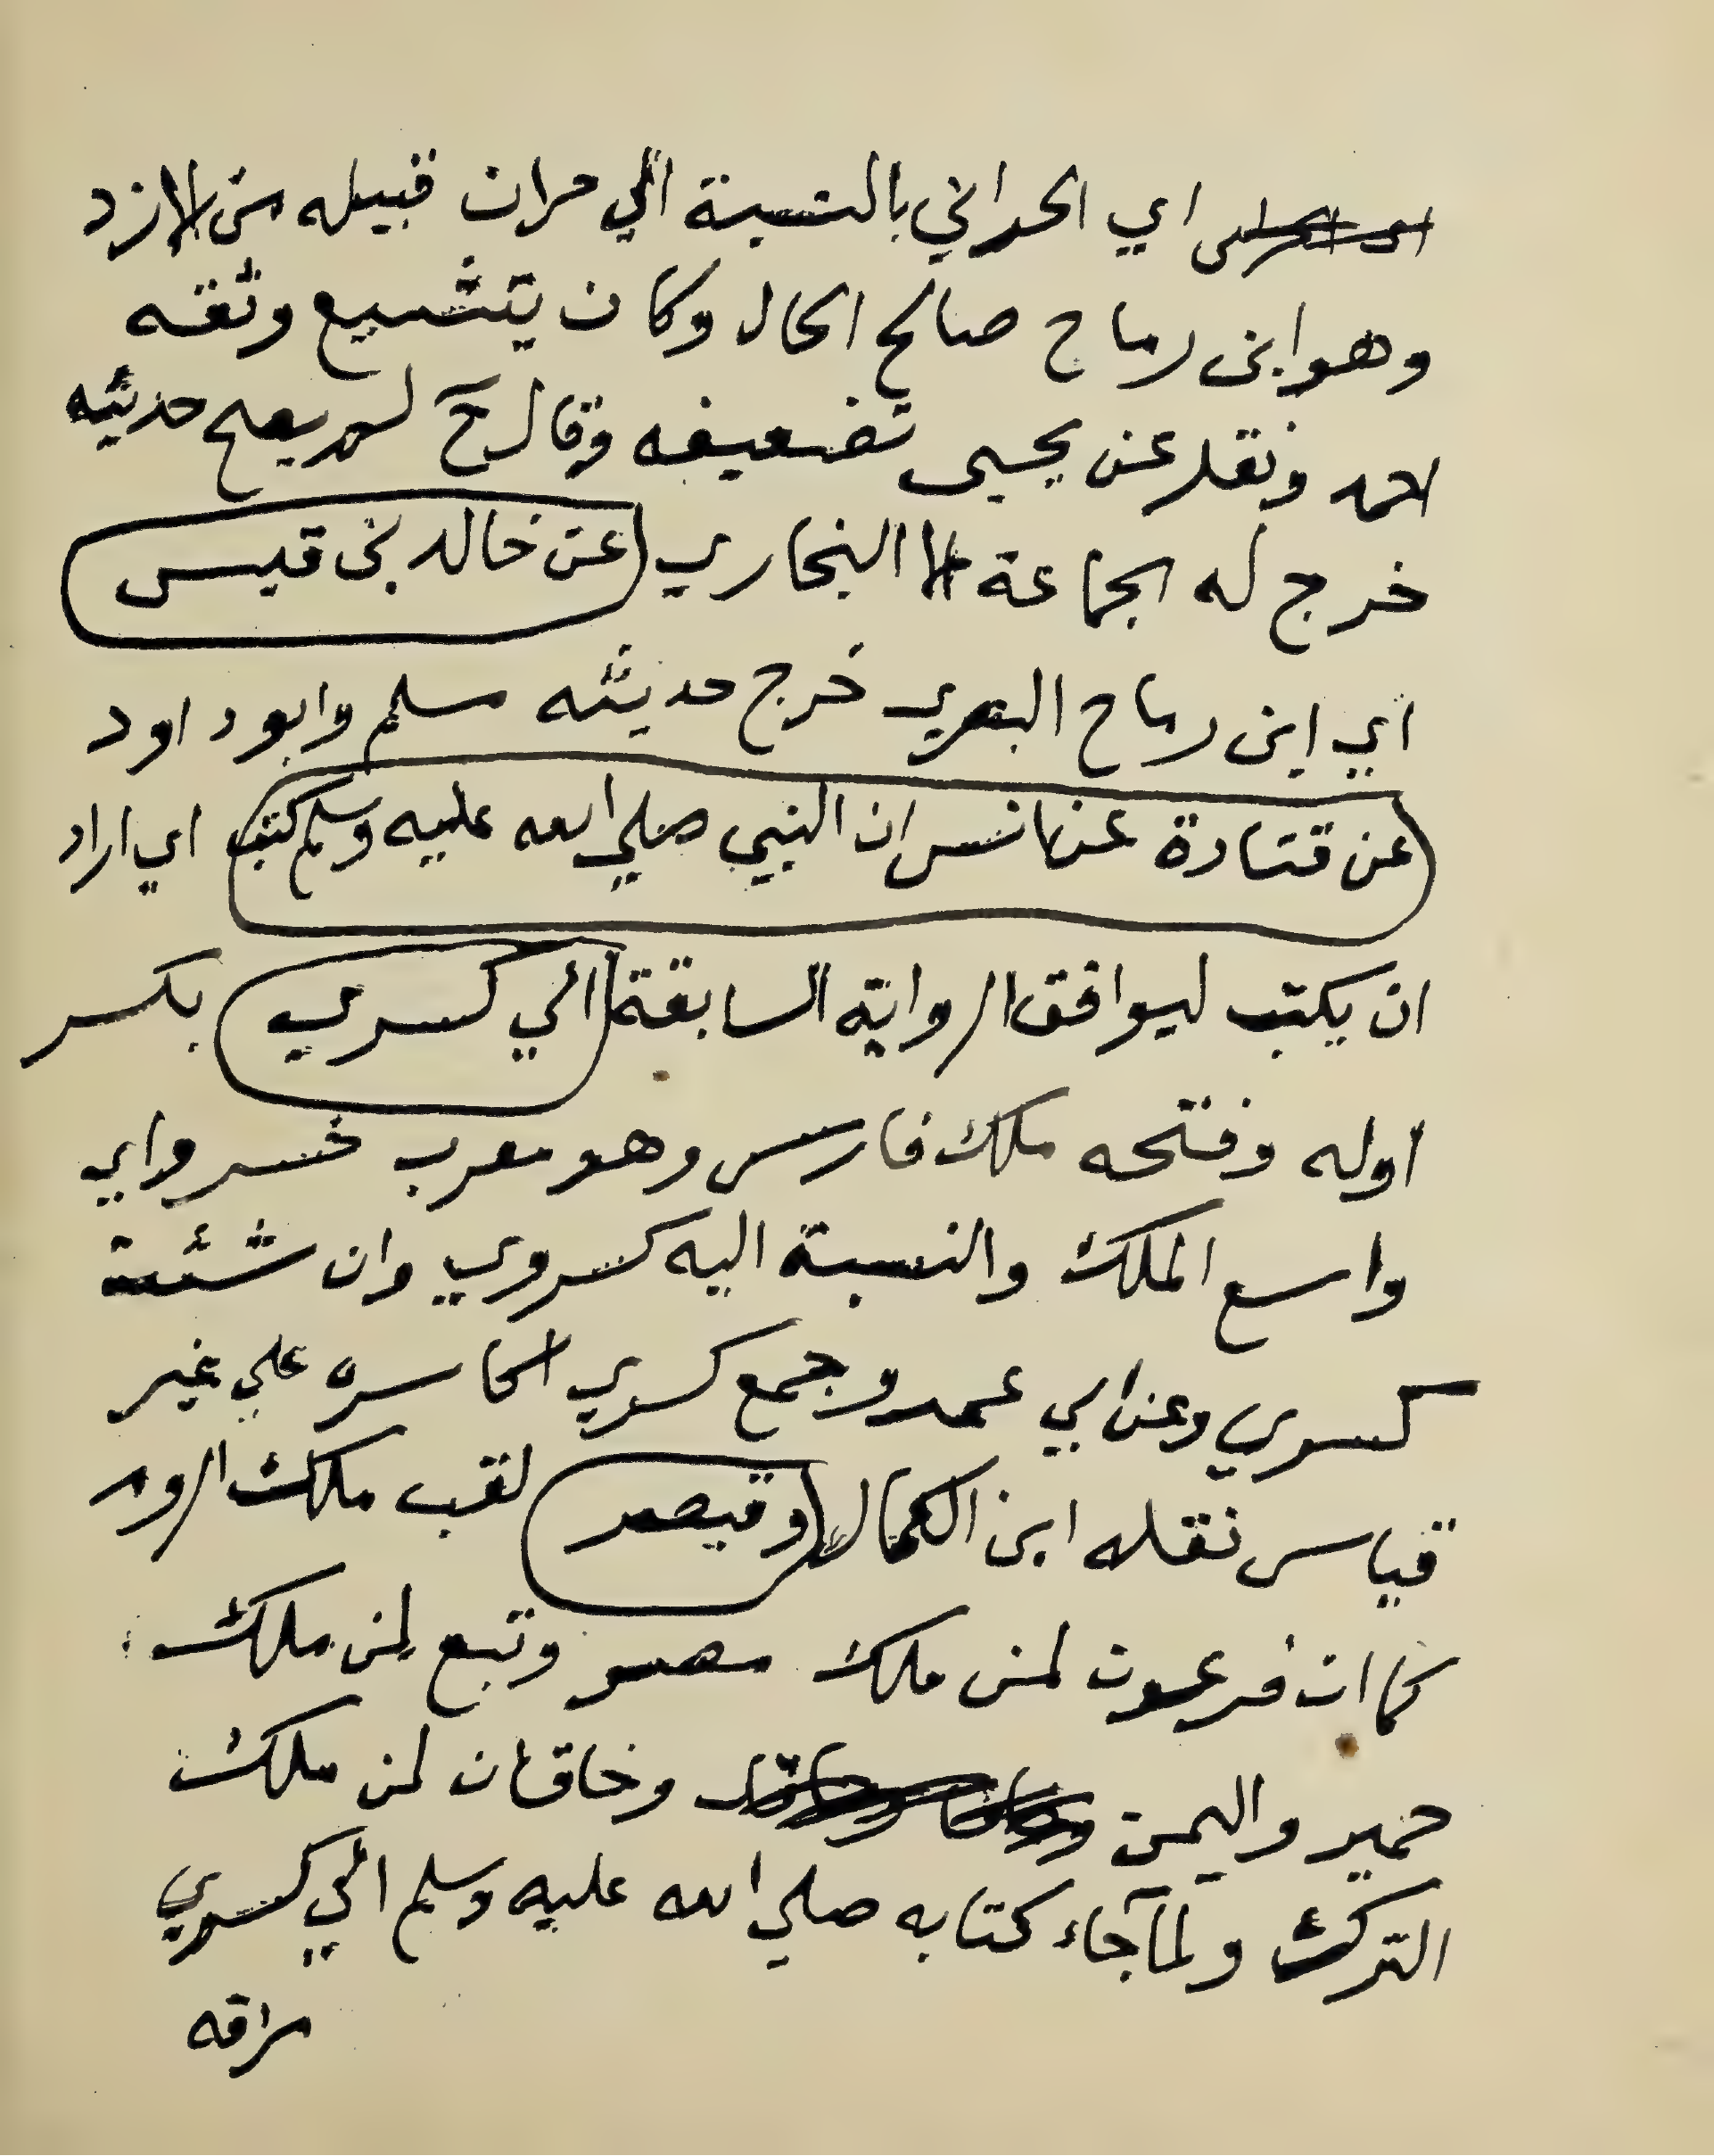 اي الحراني بالنسبة الي حران قبيله من الازد
وهو ابن رباح صالح الحال وكان يتشيع وثقه
احمد ونقل عن يحيى تضعيفه وقال خ لم يصح حديثه
خرج له الجماعة الا البخاري عن خالد بن قيس
اي ابن رباح البصري خرج حديثه مسلم وابو داود
عن قتادة عن انس ان النبي صلي الله عليه وسلم كتب اي اراد
ان يكتب ليوافق الرواية السابقة الي كسري بكسر
اوله وفتحه ملك فارس وهو معرب خسرو اي
واسع الملك والنسبة اليه كسروي وان شئت
كسري وعن ابي عمرو جمع كسري اكاسره علي غير
قياس نقله ابن الكمال وقيصر لقب ملك الروم
كما ان فرعون لمن ملك مصر وتبع لمن ملك
حمير واليمن وخاقان لمن ملك
الترك ولما جاء كتابه صلي الله عليه وسلم الي كسري
مزقه